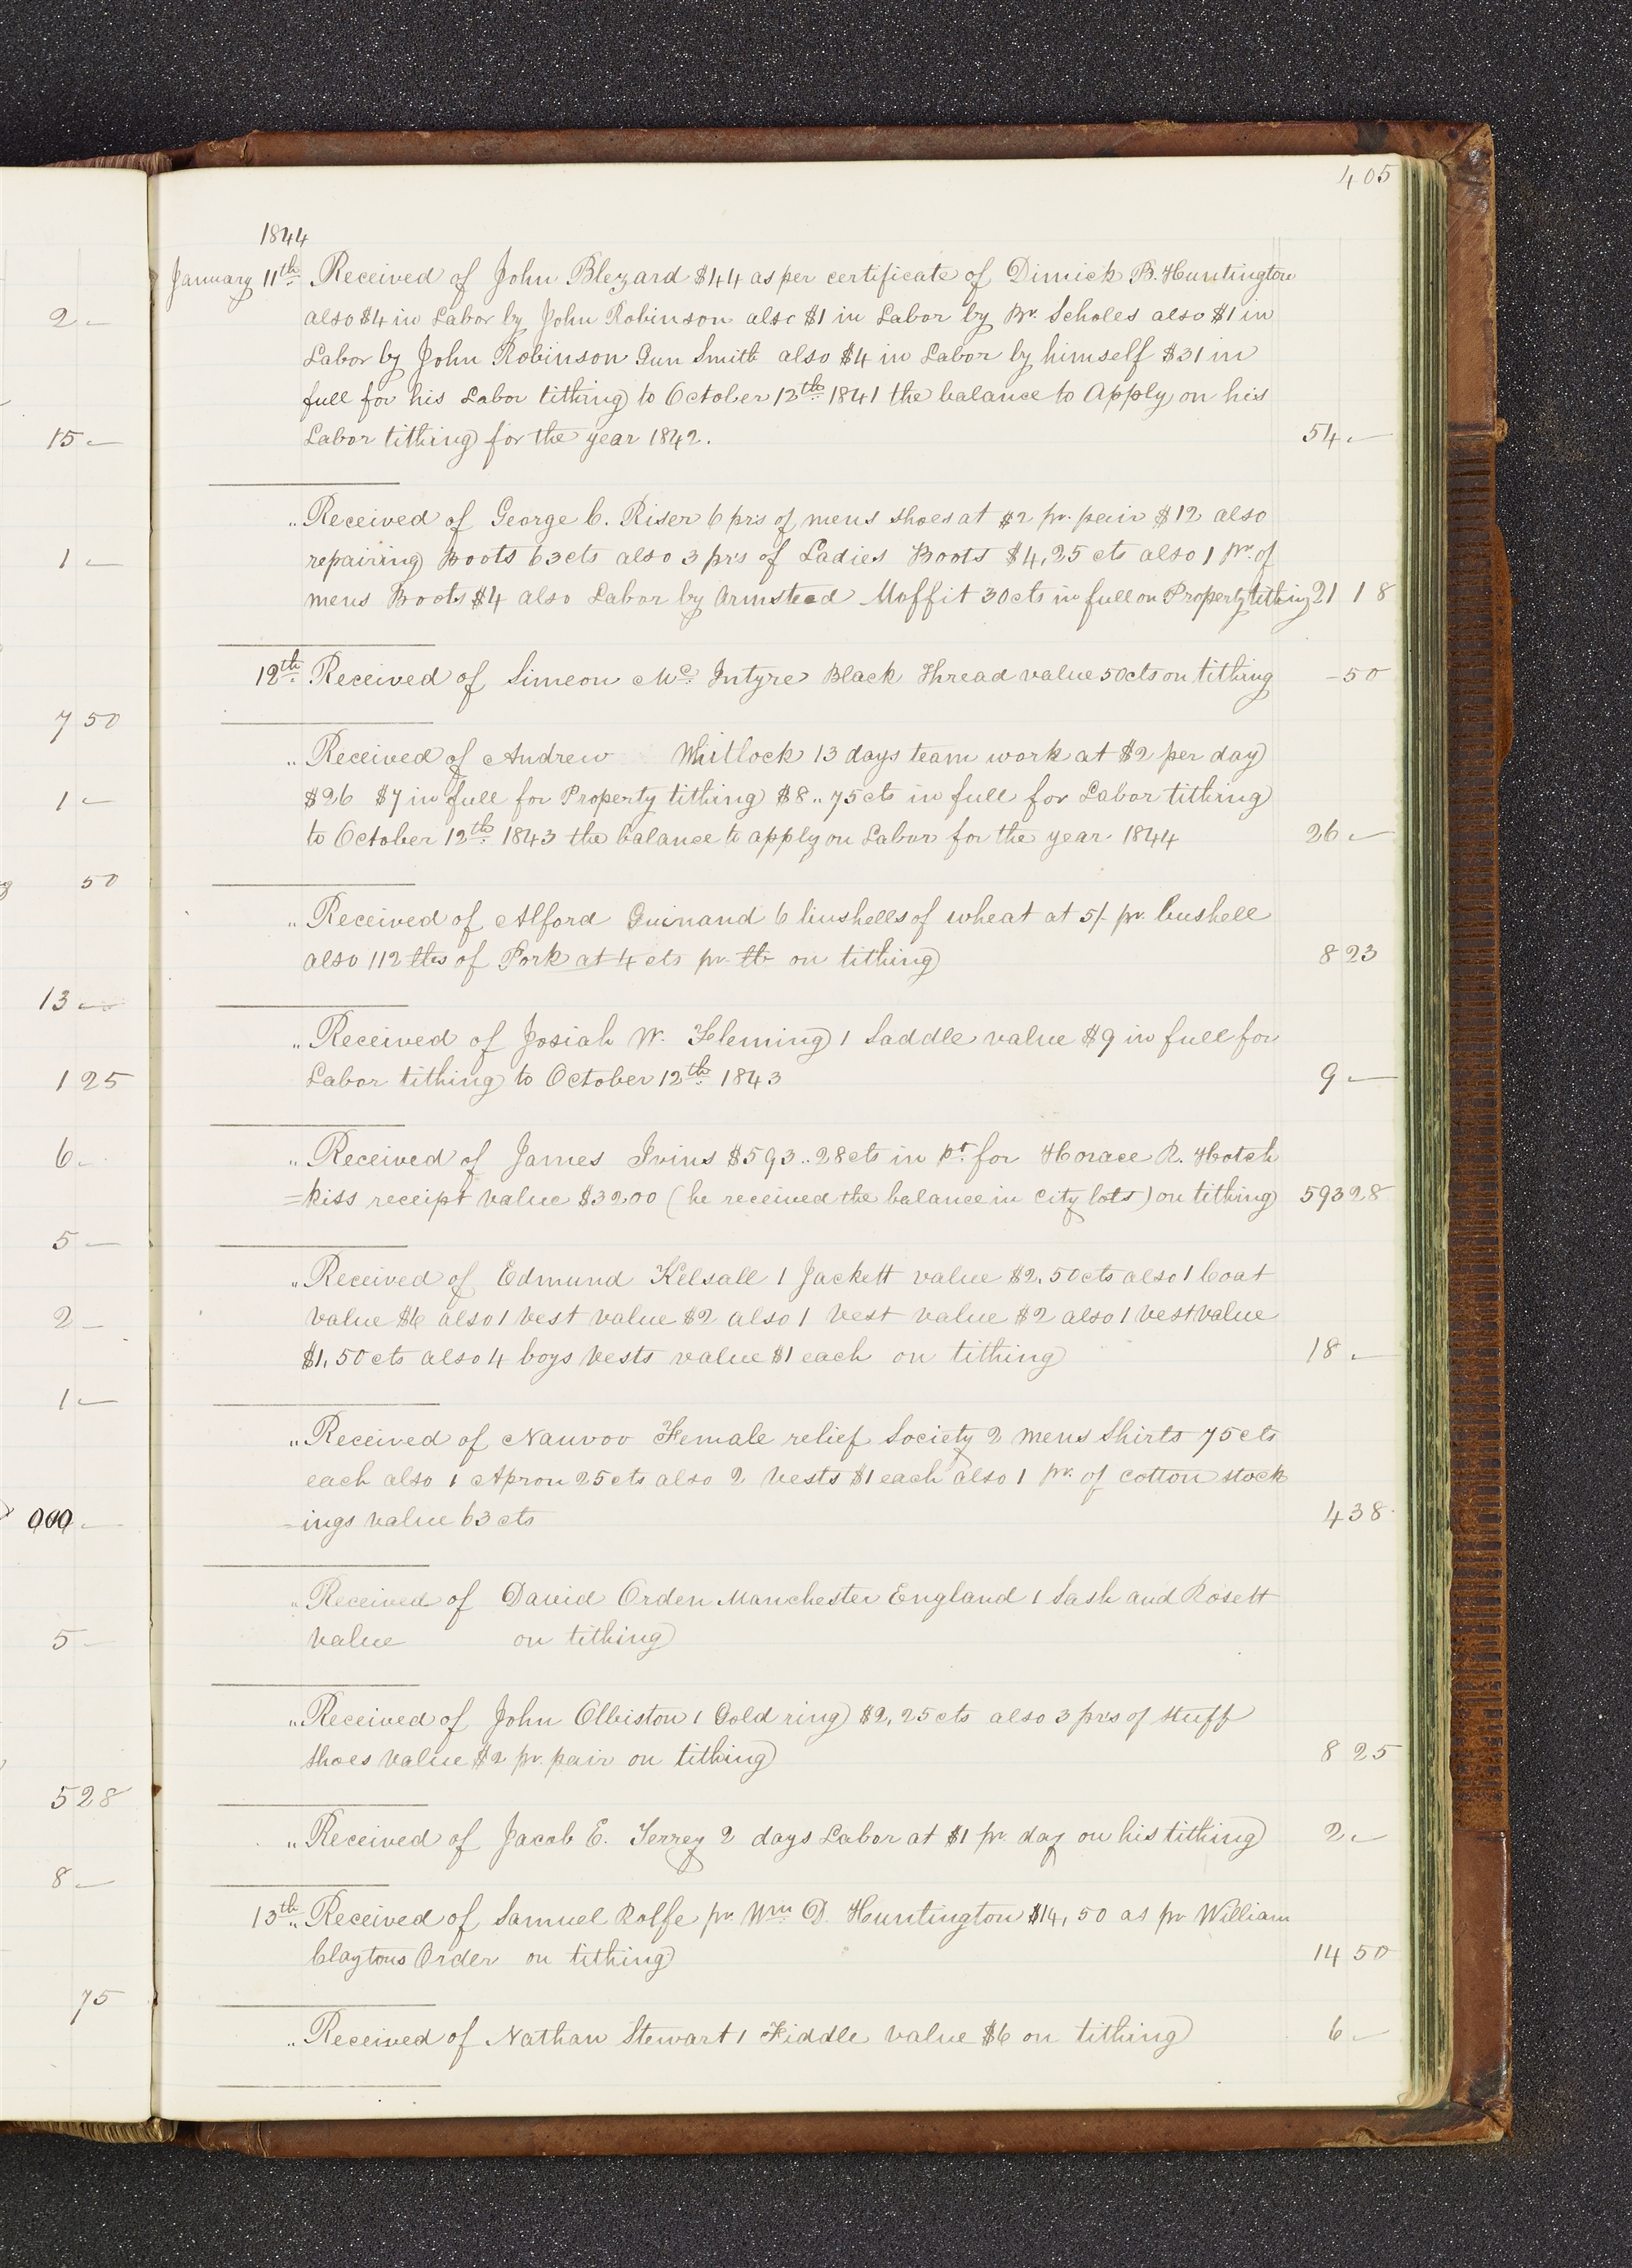 405
1844
January 11th Received of John Blezard $44 as per certificate of Dimick B. Huntington
also $4 in Labor by John Robinson also $1 in Labor by Br. Scholes also $1 in
Labor by John Robinson Gun Smith also $4 in Labor by himself $31 in
full for his Labor tithing to October 12th 1841 the balance to Apply on his
Labor tithing for the year 1842. 54 —
„ Received of George C. Riser 6 prs of mens shoes at $2 pr. pair $12 also
repairing Boots 63 cts also 3 prs of Ladies Boots $4,25 cts also 1 pr. of
mens Boots $4 also Labor by Armstead Moffit 30 cts in full on Property tithing 21 18
12th Received of Simeon Mc Intyre Black Thread value 50 cts on tithing - 50
„ Received of Andrew Whitlock 13 days team work at $2 per day
$26 $7 in full for Property tithing $8..75 cts in full for Labor tithing
to October 12th 1843 the balance to apply on Labor for the year 1844 26 —
„ Received of Alford Guinand 6 bushells of wheat at 5/- pr. bushell
also 112 lbs of Pork at 4 cts pr. lb on tithing 8 23
„ Received of Josiah W. Fleming 1 Saddle value $9 in full for
Labor tithing to October 12th 1843 9 —
„ Received of James Ivins $593..28 cts in pt. for Horace R. Hotch
=kiss receipt value $3200 (he received the balance in City lots) on tithing 593 28
„ Received of Edmund Kelsall 1 Jackett value $2.50 cts also 1 Coat
value $6 also 1 vest value $2 also 1 vest value $2 also 1 vest value
$1.50 cts also 4 boys vests value $1 each on tithing 18 —
„ Received of Nauvoo Female relief Society 2 mens Shirts 75 cts
each also 1 Apron 25 cts also 2 Vests $1 each also 1 pr. of cotton stock
=ings value 63 cts 4 38
„ Received of David Orden Manchester England 1 Sash and Rosett
value on tithing
„ Received of John Ollbiston 1 Gold ring $2,25 cts also 3 prs of stuff
shoes value $2 pr. pair on tithing 8 25
„ Received of Jacob E. Terrey 2 days Labor at $1 pr. day on his tithing 2 —
13th „ Received of Samuel Rolfe pr Wm D. Huntington $14,50 as pr William
Claytons Order on tithing 14 50
„ Received of Nathan Stewart 1 Fiddle value $6 on tithing 6 —
2 —
15 —
1 —
7 50
1 —
50
13 —
1 25
6 -
5 —
2 —
1 —
000 —
5 -
5 28
8 —
75